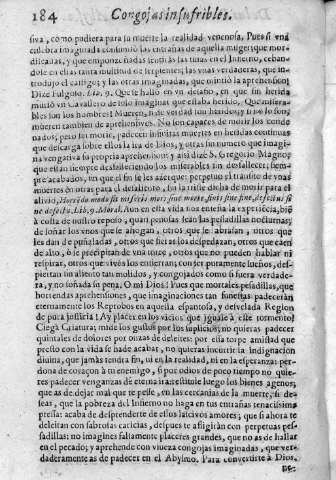 184 Congojas insufribles.
siva, como pudiera para su muerte la realidad venenosa. Pues si una
culebra imaginada consumiò las entrañas de aquella muger; que mor-
dicadas, y que atormentadas seràn las tuyas en el Infierno, ceban-
dose en ellas tanta multitud de serpientes, las unas verdaderas, que in-
trodujo el castigo; y las otras imaginadas, que mintiò la aprehension?
Dize Fulgoso que hallò en un que sin herida
muriò un Cavallero de solo imaginar que estaba herido. Que misera-
bles son los hombres! Mueren, si es verdad sus heridas; y si no lo son,
mueren tambien de aprehensivos. No son capaces de morir los conde-
nados; pero sin morir, padecen infinitas muertes en heridas continuas
que descarga sobre ellos la ira de Dios, y otras sin numero que imagi-
na vengativa su propria aprehension; y assi dize S. Gregorio Magno,
que estan siempre desfalleciendo los miserables sin desfallecer; siem-
pre acabados, sin que el fin se les acerque: perpetuo el transito de unas
muertes en otras para el desaliento, sin la triste dicha de morir para el
alivio, Horrendo modo fit miseris mors sine morte, finis sine fine, defectus si
ne defectu, Lib. 9. Moral. Aun en esta vida nos enseña la experiencia, biẽ
à costa de nuestro reposo, quan pesadas sean las pesadillas nocturnas
de soñar los unos que se ahogan, otros que se abrasan, otros que
les dan de puñaladas, otros que fieras los despedazan, otros que caen
de alto, ò se precipitan de una torre, otros que no pueden hablar ni
respirar, otros que vivos los entierran; con ser puramente sueños, des-
piertan sin aliento tan molidos, y congojados como si fuera verdade-
ra, y no soñada su pena. O mi Dios! Pues que mortales pesadillas, que
horrendas aprehensiones, que imaginaciones tan funestas padeceràn
eternamente los Reprobos en aquella espantosa, y desvelada Region
de pura justicia! Ay placer en los vicios que iguale à este tormento!
Ciega Criatura; mide los gustos por los suplicios; no quieras padecer
quintales de dolores por onzas de deleites: por essa torpe amistad que
presto con la vida se ha de acabar, no quieras incurrir la indignacion
divina, que jamàs tendra fin, ni en la realidad, ni en la esperanza: per-
dona de coraçon à tu enemigo, si por odios de poco tiempo no quie-
res padecer venganzas de eterna ira: restituie luego los bienes agenos,
que as de dejar mal que te pese, en las cercanias de la muerte; si de-
seas, que la pobreza del Infierno no haga en tus entrañas tenacissima
pressa: acaba de desprenderte de essos lascivos amores; que si ahora te
deleitan con sabrosas caricias, despues te afligiràn con perpetuas pes-
sadillas: no imagines faltarte placeres grandes, que no as de hallar
en el pecado; y aprehende con viveza congojas imaginadas, que ver-
daderamente as de padecer en el Abysmo. Para convertiste à Dios,